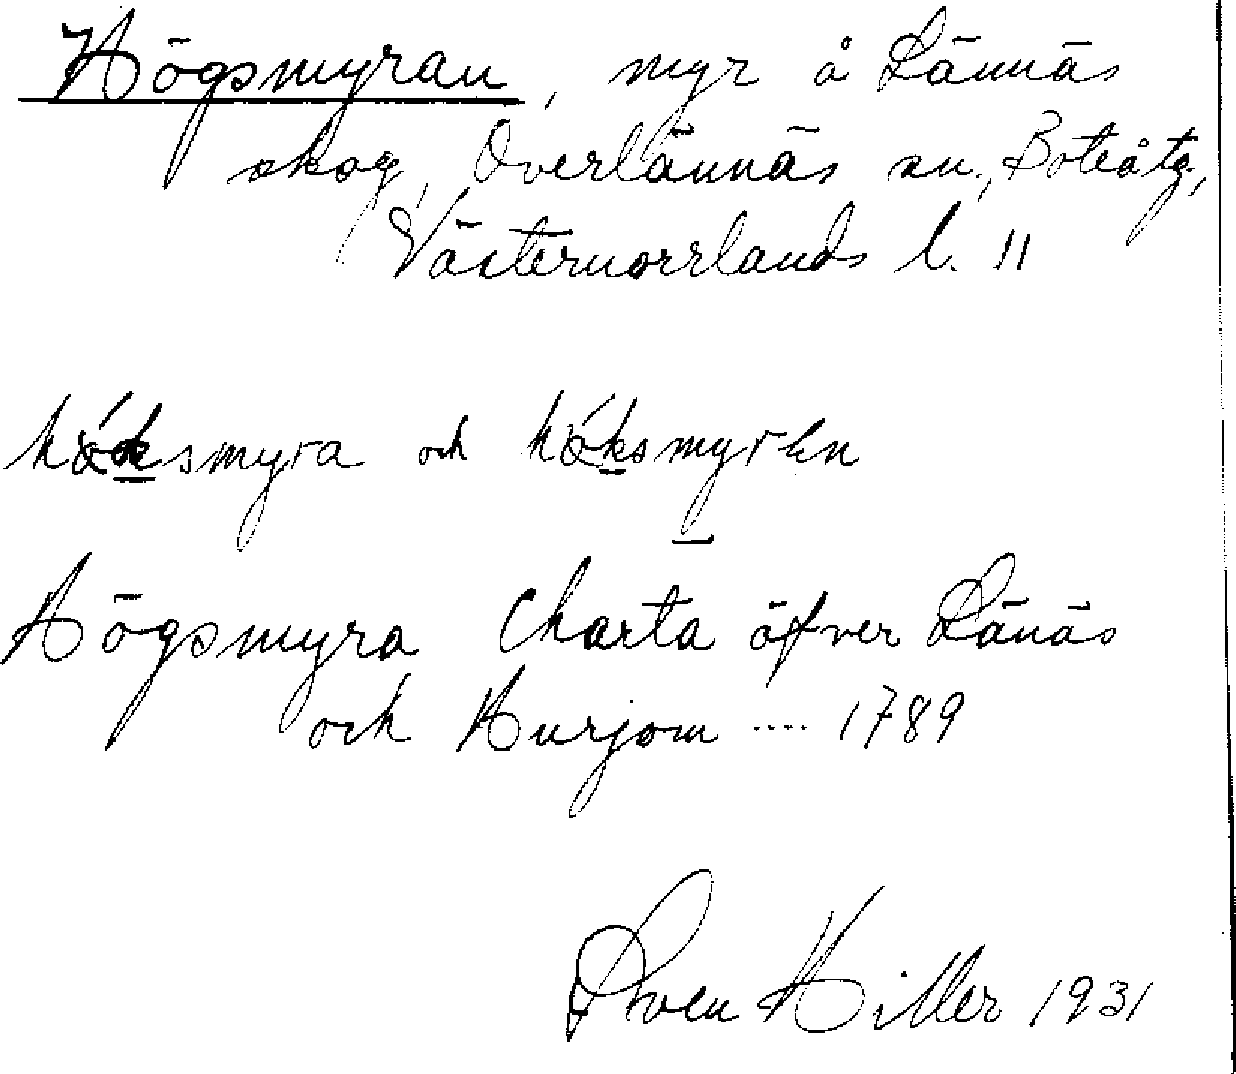 Högsmyran, myr å Lännäs
skog, Överlännäs sn., Boteåtg,
Västernorrlands l. 11
och
Högsmyra Charta öfver Länäs
och Hurjom .... 1789
Sven Hiller 1931